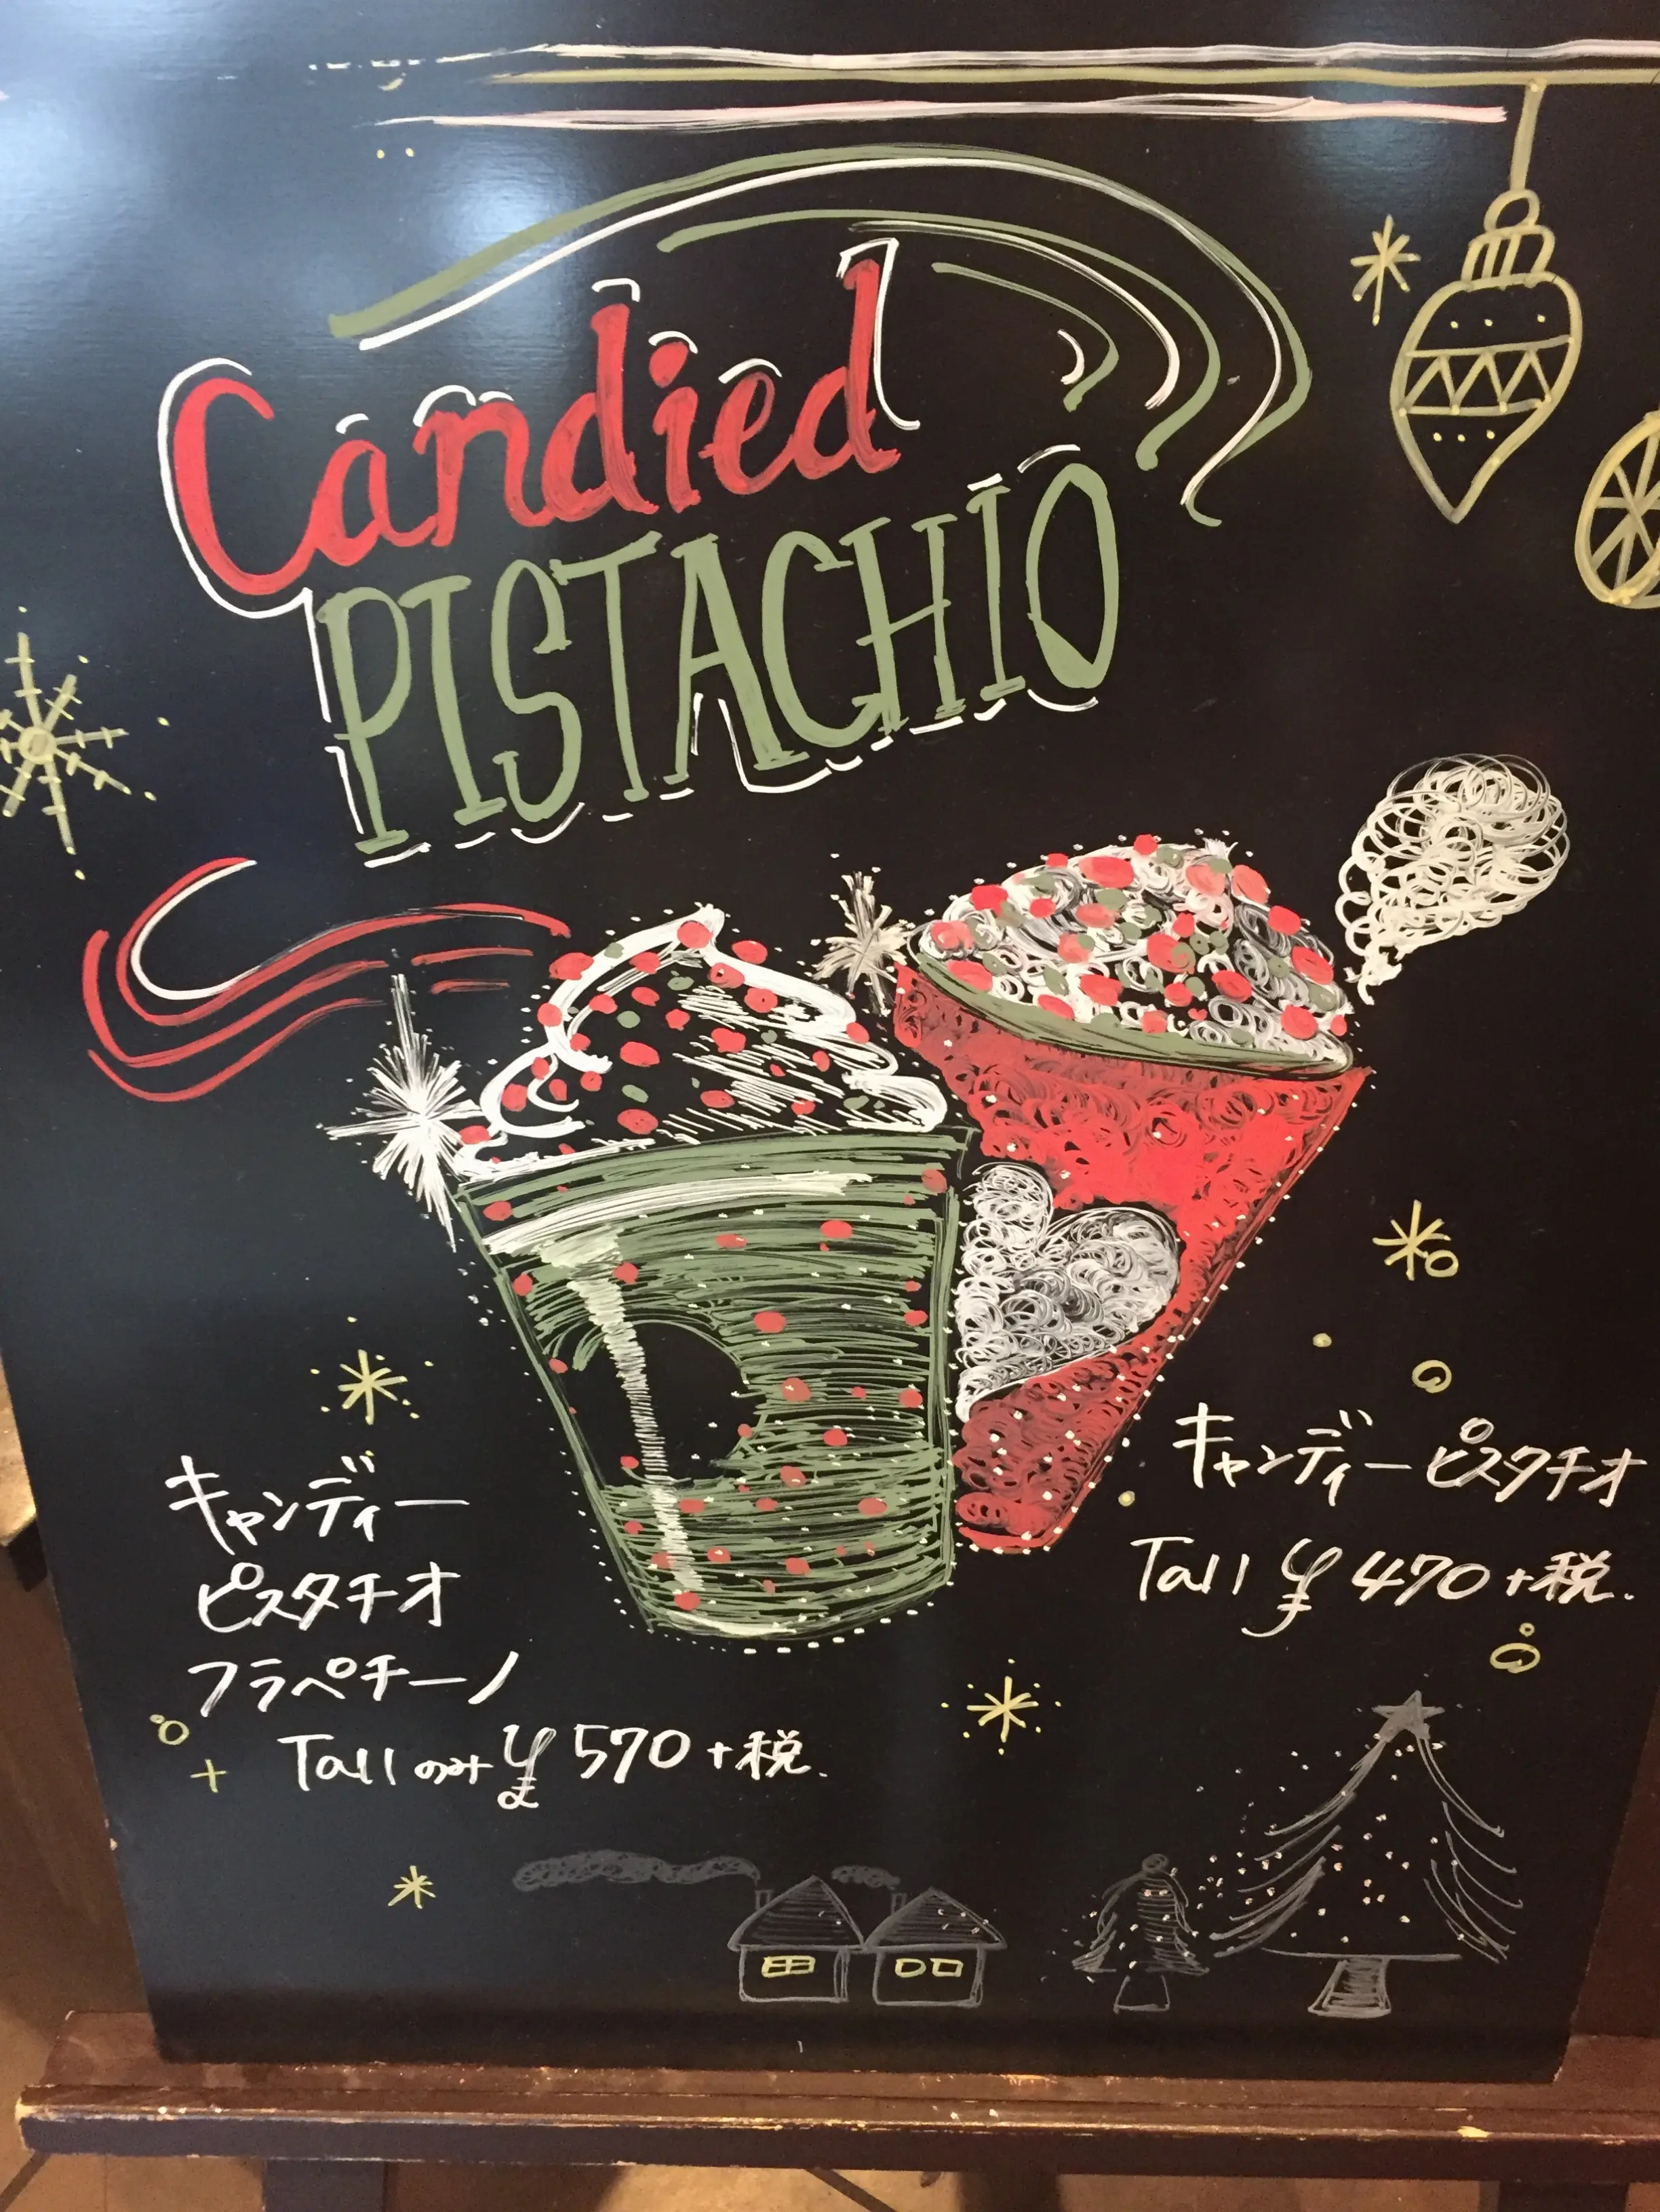 Candied
PISTACHIO
キャンディー
ピスタチオ
フラペチーノ
Tallのみ ¥570+税.
キャンディーピスタチオ
Tall ¥470+税.